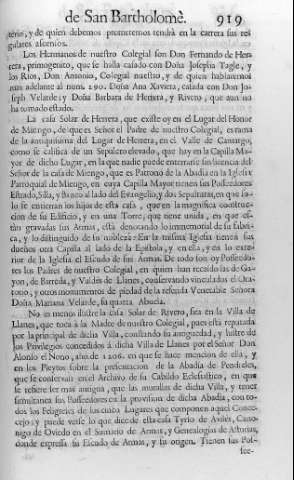 de San Bartholomè. 919
terio, y de quien debemos prometernos tendrá en la carrera sus regulares
ascensos.
Los Hermanos de nuestro Colegial son Don Fernando de Herrera,
primogenito, que se halla casado con Doña Josepha Tagle, y
los Rios, Don Antonio, Colegial nuestro, y de quien hablaremos
mas adelante al num. 290. Doña Ana Xaviera, casada con Don Joseph
Velarde, y Doña Barbara de Herrera, y Rivero, que aun no
ha tomado estado.
La casa Solar de Herrera, que existe oy en el Lugar del Honor
de Miengo, de que es Señor el Padre de nuestro Colegial, es rama
de la antiquisima del Lugar de Herrera, en el Valle de Camargo,
como se califica de un Sepulcro elevado, que hay en la Capilla Mayor
de dicho Lugar, en la que nadie puede enterrarse sin licencia del
Señor de la casa de Miengo, que es Patrono de la Abadìa en la Iglesia
Parroquial de Miengo, en cuya Capilla Mayor tienen sus Possedores
Estrado, Silla, y Banco al lado del Evangelio, y dos Sepulturas, en que solo
se entierran los hijos de esta casa, que en la magnifica construccion
de su Edificio, y en una Torre, que tiene unida, en que están
gravadas sus Armas, está denotando lo immemorial de su fabrica,
y lo distinguido de su nobleza: En la misma Iglesia tienen sus
dueños otra Capilla al lado de la Epistola, y en ella, y en lo exterior
de la Iglesia el Escudo de sus Armas. De todo son oy Possedores
los Padres de nuestro Colegial, en quien han recaído las de Gayon,
de Barreda, y Valdés de Llanes, conservando vinculados el Oratorio,
y otros monumentos de piedad de la referida Venerable Señora
Doña Mariana Velarde, su quarta Abuela.
No es menos ilustre la casa Solar de Rivero, sita en la Villa de
Llanes, que toca à la Madre de nuestro Colegial, pues está reputada
por la principal de dicha Villa, constando su antiguedad, y lustre de
los Privilegios concedidos à dicha Villa de Llanes por el Señor Don
Alonso el Nono, año de 1206. en que se hace mencion de ella, y
en los Pleytos sobre la presentacion de la Abadìa de Pendueles,
que se conservan en el Archivo de su Cabildo Eclesiastico, en que
se refiere ser mas antigua, que las murallas de dicha Villa, y tener
simultanea sus Possedores en la provision de dicha Abadìa, con todos
los Feligreses de los cinco Lugares que componen aquel Concejo:
y puede verse lo que dice de esta casa Tyrso de Avilés, Canonigo
de Oviedo en el Sumario de Armas, y Genealogìas de Asturias,
donde expressa su Escudo de Armas, y su origen. Tienen sus Posse-